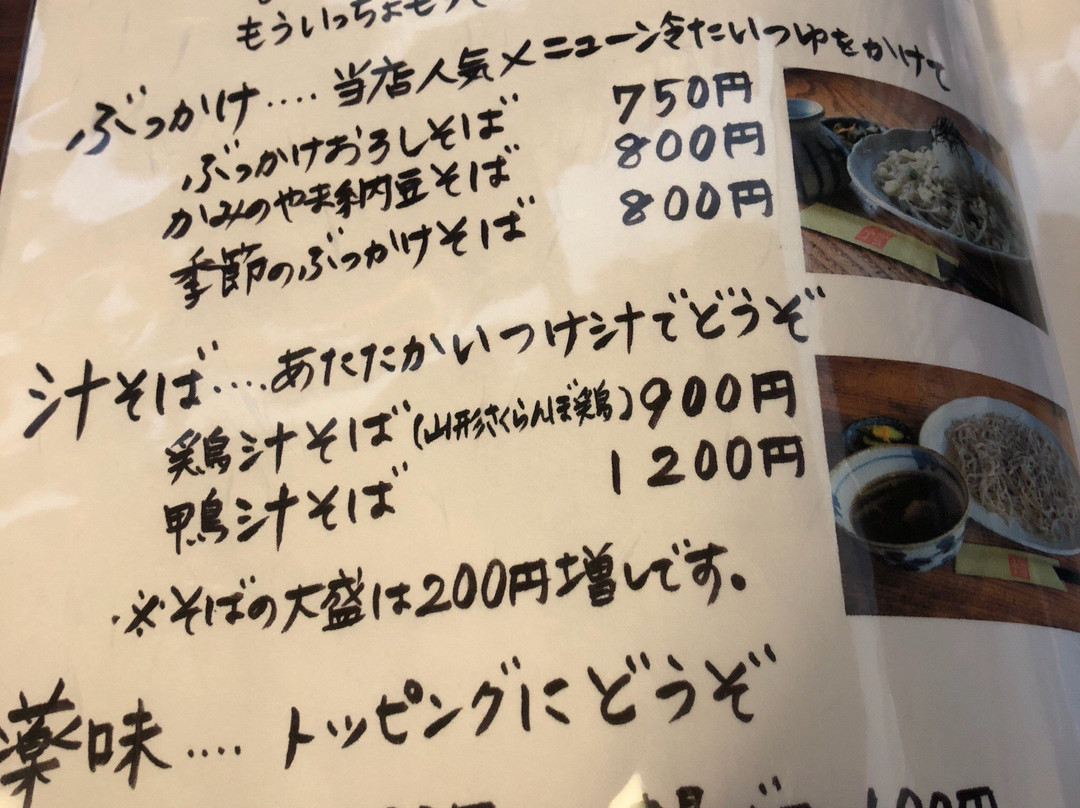 もういっちょもって
ぶっかけ‥‥当店人気メニュー冷たいつゆをかけて
ぶっかけおろしそば 750円
かみのやま納豆そば 800円
季節のぶっかけそば 800円
汁そば‥‥あたたかいつけ汁でどうぞ
鶏汁そば(山形さくらんぼ鶏) 900円
鴨汁そば 1200円
※そばの大盛は200円増しです。
薬味‥‥トッピングにどうぞ
100円